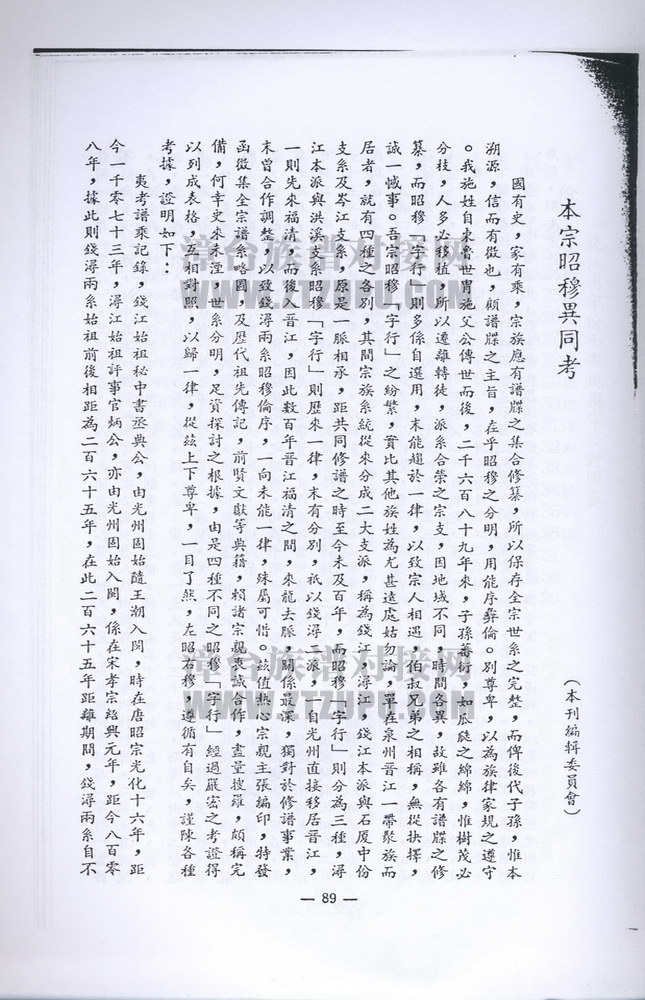 本宗昭穆異同考
（本刊編輯委員會）
國有史，家有乘，宗族應有譜牒之集合修纂，所以保存全宗世系之完整，而俾後代子孫，惟本
溯源，信而有徵也，顧譜牒之主旨，在乎昭穆之分明，用能序彝倫。別尊卑，以為族律家規之遵守
。我施姓自來魯世冑施父公傳世而後，二千六百八十九年來，子孫蕃衍，如瓜瓞之綿綿，惟樹茂必
分枝，人多必移植，所以遷離轉徒，派系合榮之宗支，因地域不同，時間各異，故雖各有譜牒之修
纂，而昭穆「字行」則多係自選用，未能趨於一律，以致宗人相遇，伯叔兄弟之相稱，無從抉擇，
誠一憾事。吾宗昭穆「字行」之紛繁，實比其他族姓為尤甚遠處姑勿論，單在泉州晉江一帶聚族而
居者，就有四種之各別，其間宗族系統從來分成二大支派，稱為錢江、潯江，錢江本派與石厦中份
支系及岑江支系，原是一脈相承，距共同修譜之時至今未及百年，而昭穆「字行」則分為三種，潯
江本派與洪溪支系昭穆「字行」則歷來一律，末有分別，祇以錢潯二派，一自光州直接移居晉江，
一則先來福清，而後入晉江，因此數百年晉江福清之間，來龍去脈，關係最深，獨對於修譜事業，
末曾合作調整，以致錢潯兩系昭穆倫序，一向未能一律，殊屬可惜。茲值熱心宗親主張編印，特發
函徵集全宗譜系略圖，及歷代祖先傳記，前賢文獻等典籍，賴諸宗親衷誠合作，盡量搜羅，頗稱完
備，何幸史來未湮，世系分明，足資探討之根據，由是四種不同之昭穆「字行」經過嚴密之考證得
以列成表格，互相對照，以歸一律，從茲上下尊卑，一目了然，左昭右穆，遵循有自矣，謹陳各種
考據，證明如下：
夷考譜乘記錄，錢江始祖秘中書丞典公，由光州固始隨王潮入閩，時在唐昭宗光化十六年，距
今一千零七十三年，潯江始祖評事官炳公，亦由光州固始入閩，係在宋孝宗紹興元年，距今八百零
八年，據此則錢潯兩系始祖前後相距為二百六十五年，在此二百六十五年距離期間，錢潯兩系自不
— 89 —
漳台族譜对接网
WWW.ZTZUPU.COM
漳台族譜对接网
WWW.ZTZUPU.COM